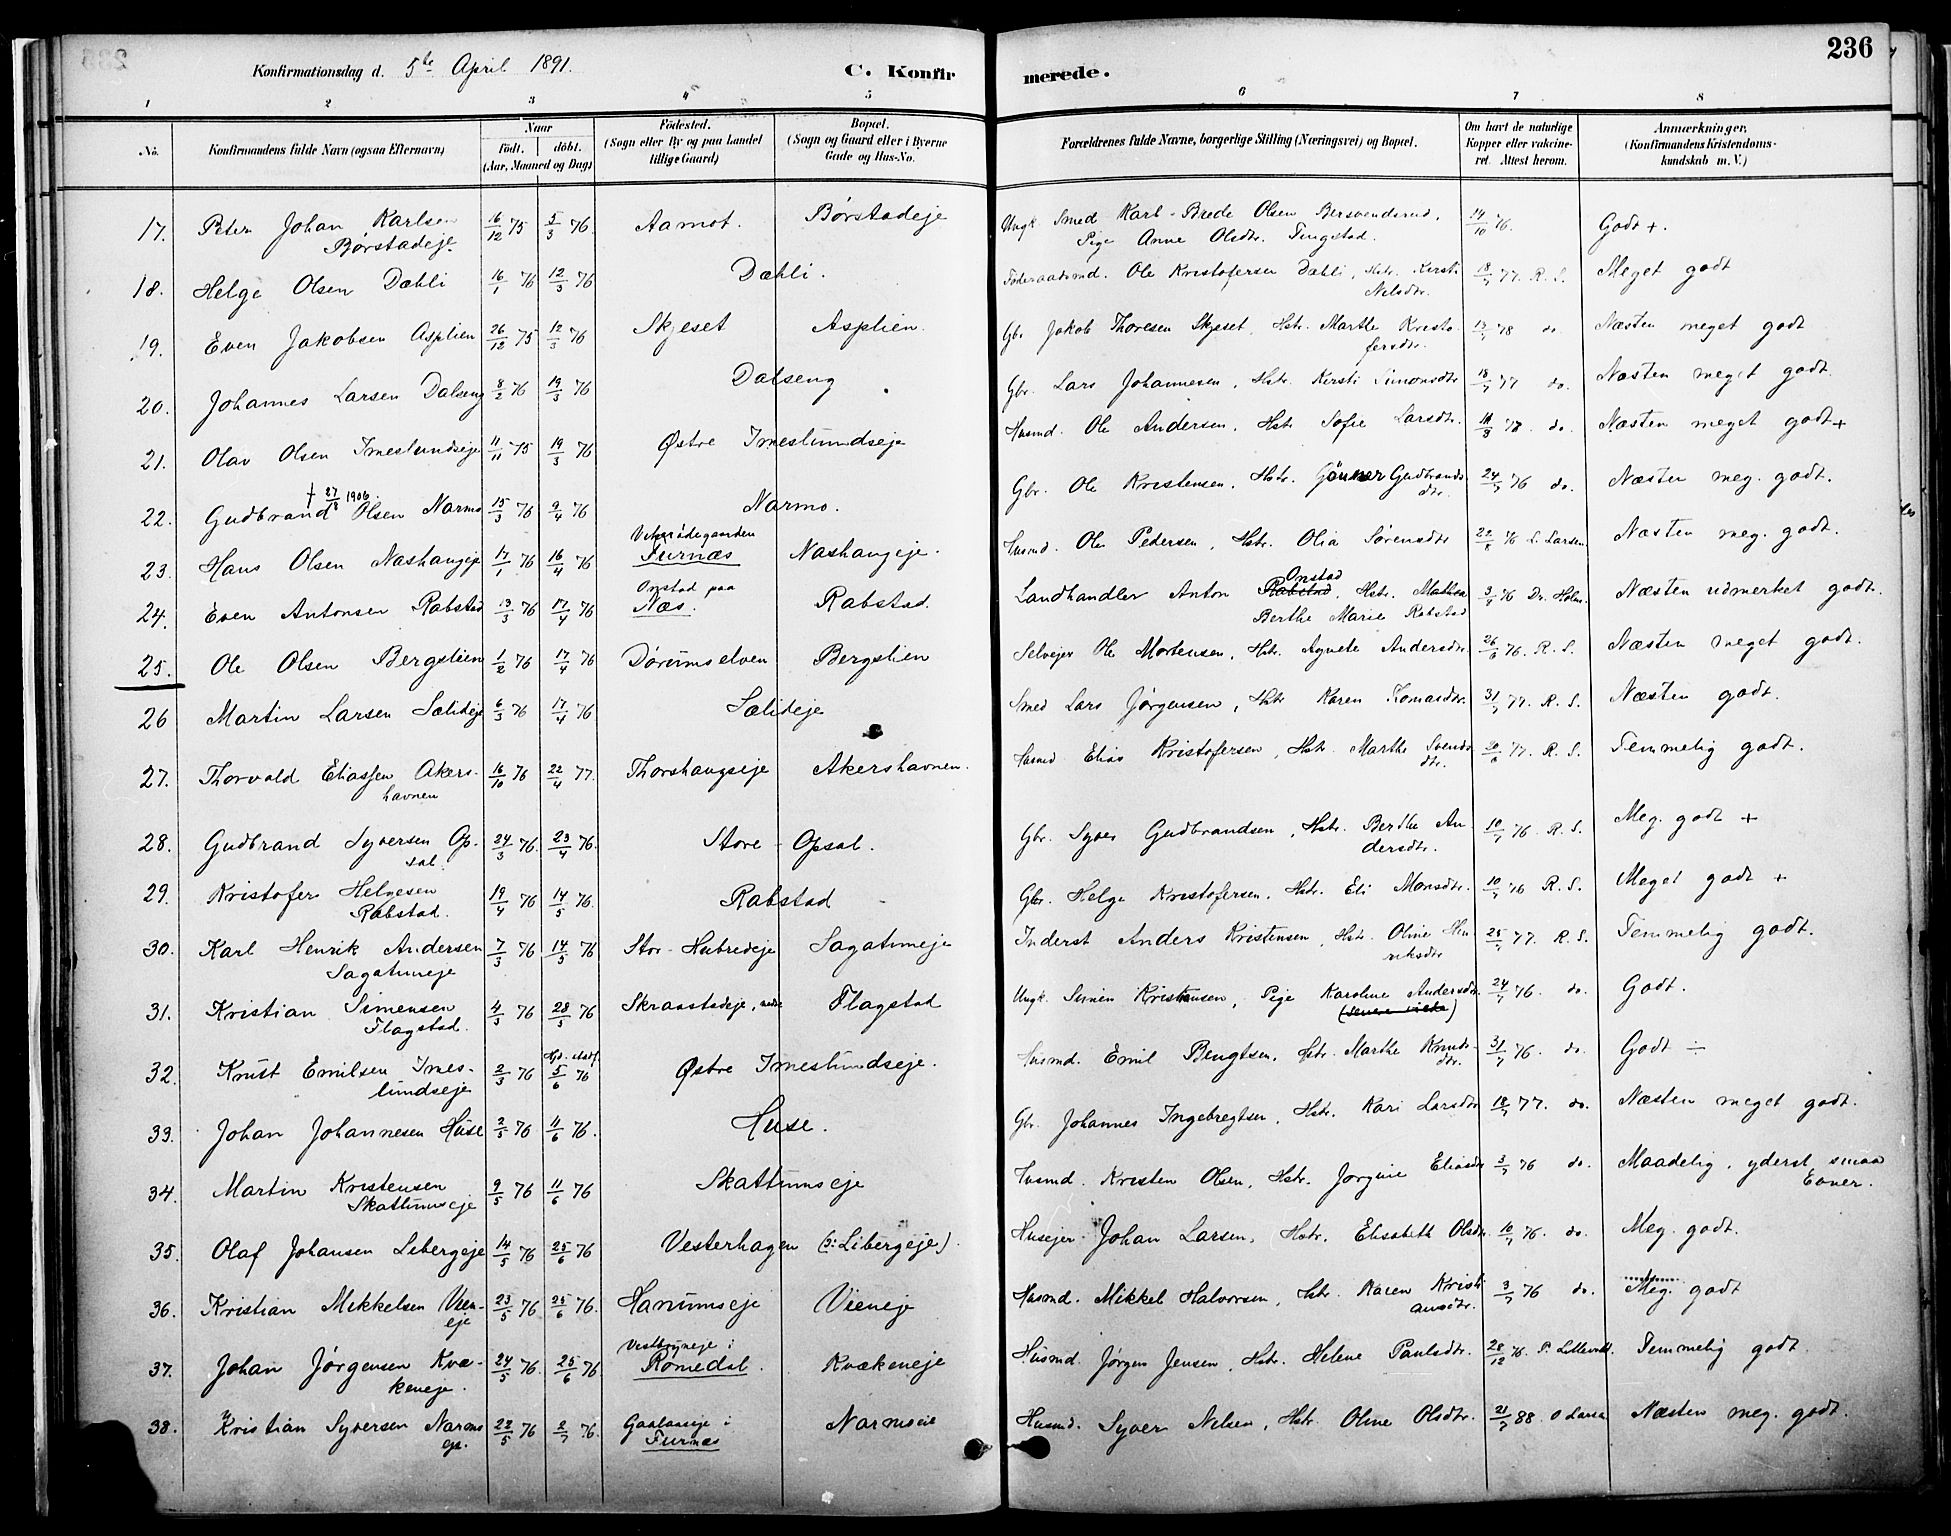 236
Konfirmationsdag d. 5te April 1891.
C. Konfirmerede.
1 2 3 4 5 6 7 8
No. Konfirmandens fulde Navn (ogsaa Efternavn) Naar født. døbt. (Aar, Maaned og Dag) Fødested. (Sogn eller By og paa Landet tillige Gaard) Bopæl. (Sogn og Gaard eller i Byerne Gade og Hus-No. Forældrenes fulde Navne, borgerlige Stilling (Næringsvei) og Bopæl. Om havt de naturlige Kopper eller vakcineret. Attest herom. Anmærkninger. (Konfirmandens Kristendomskundskab m. V.)
17. Peter Johan Karlsen 16/12 75 5/3 76 Aamot. Børstadeje Ungk. Smed Karl-Brede Olsen Bersvendsrud, 14/10 76. Godt +.
Børstadeje Pige Anne Olsdtr. Tingstad.
18. Helge Olsen Dæhli 16/1 76 12/3 76 Dæhli. Føderaadsmd. Ole Kristofersen Dæhli, Hstr. Kersti 18/7 77. R. S. Meget godt
Nilsdtr.
19. Even Jakobsen Asplien 26/12 75 12/3 76 Skjeset Asplien. Gbr Jakob Thoresen Skjeset, Hstr. Marthe Kristo- 13/7 78 do. Næsten meget godt
fersdtr.
20. Johannes Larsen Dalseng 8/2 76 19/3 76 Dalseng Gbr. Lars Johannesen, Hstr. Kersti Simonsdtr 18/7 77 do. Næsten meget godt.
21. Olav Olsen Imeslundseje 11/11 75 19/3 76 Østre Imeslundseje Husmd. Ole Andersen, Hstr Sofie Larsdtr. 78 do. Næsten meget godt+
† 27/8 1906.
22. Gudbrand Olsen Narmo 15/3 76 9/4 76 Narmo. Gbr. Ole Kristensen, Hstr. Gunner Gudbrands- 24/7 76 do. Næsten meg. godt.
dtr.
23. Hans Olsen Nashaugeje 17/1 76 16/4 76 Furnæs Nashaugeje. Husmd. Ole Pedersen, Hstr. Olia Sørensdtr 76 S. Larsen Næsten meg. godt.
24. Even Antonsen Rabstad 13/3 76 17/4 76 Onstad paa Næs. Rabstad. Landhandler Anton Rabstad Onstad, Hstr. Mathea 76 Dr. Holm. Næsten udmerket godt.
Berthe Marie Rabstad
25. Ole Olsen Bergslien 1/2 76 17/4 76 Dørumselven Bergslien Selvejer Ole Mortensen, Hstr. Agnete Andersdtr. 26/6 76. R. S. Næsten meget godt.
26 Martin Larsen Sælideje 6/3 76 17/4 76 Sælideje Smed Lars Jørgensen, Hstr Karen Tomasdtr. 31/7 77. R. S. Næsten godt.
27. Thorvald Eliassen Akers- 16/10 76 22/4 77. Thorshaugseje Akershavnen. Husmd Elias Kristofersen, Hstr. Marthe Svends- 20/6 77. R. S. Temmelig godt.
havnen dtr.
28. Gudbrand Syversen Op- 24/3 76. 23/4 76. Store-Opsal. Gbr. Syver Gudbrandsen, Hstr. Berthe An- 10/7 76. R. S. Meg. godt +
sal. dersdtr.
29. Kristofer Helgesen 19/4 76 14/5 76. Rabstad Gbr. Helge Kristofersen, Hstr. Eli Monsdtr. 10/7 76 R. S. Meget godt +
Rabstad.
30. Karl Henrik Andersen 7/3 76 14/5 76 Stor-Hubredeje Sagatuneje Inderst Anders Kristensen, Hstr. Oline Hen- 25/7 77. R. S. Temmelig godt.
Sagatuneje riksdtr
31. Kristian Simensen 4/3 76. 28/5 76 Skraastadeje, nedre Flagstad Ungk. Simen Kristiansen, Pige Karoline Andersdtr. 24/7 76. do. Godt.
Flagstad.
32. Knut Emilsen Imes- 2/3 76 5/6 76 Østre Imeslundseje. Husmd. Emil Bengtsen, Hstr. Marthe Knuds- 31/7 76. do. Godt ÷
lundseje dtr.
33. Johan Johannesen Huse 2/5 76 11/6 76. Huse. Gbr. Johannes Ingebregtsen, Hstr. Kari Larsdtr 18/7 77. do. Næsten meget godt.
34. Martin Kristensen 9/5 76 11/6 76 Skattumseje Husmd. Kristen Olsen, Hstr. Jørgine Eliasdtr 3/7 76 do. Maadelig, yderst smaa
Skattumseje Evner.
35. Olaf Johansen Libergeje 14/5 76 25/6 76 Vesterhagen (ɔ: Libergeje). Husejer Johan Larsen, Hstr. Elisabeth Olsdtr. 10/7 76. do. Meg. godt.
36. Kristian Mikkelsen Vien- 23/5 76 25/6 76. Hanumseje Vieneje Husmd. Mikkel Halvorsen, Hstr. Karen Kristi- 3/7 76 do. Meg. godt
eje ansdtr.
37. Johan Jørgensen Kvæ- 24/5 76. 25/6 76 Romedal. Kvækeneje Husmd. Jørgen Jensen, Hstr. Helene Paulsdtr. 28/12 76. Temmelig godt.
keneje.
38. Kristian Syversen Narmo 22/5 76 2/7 76. i Furnæs Narmoeie Husmd. Syver Nilsen, Hstr. Oline Olsdtr. 21/7 88. O Larsen Næsten meg. godt.